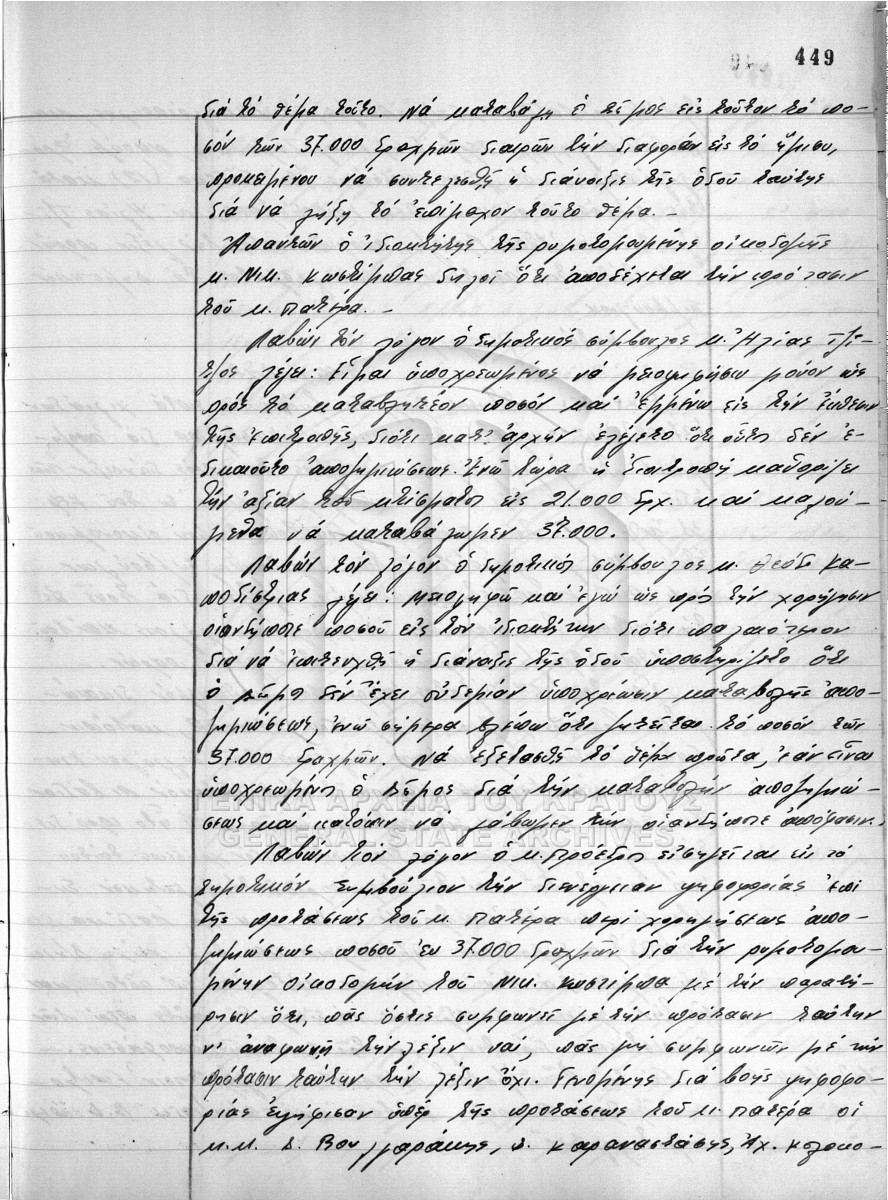 449
διά τό θέμα τοῦτο. Νά καταβάλῃ ὁ Δῆμος εἰς τοῦτον τό πο-
σόν τῶν 37.000 δραχμῶν διαιρῶν τήν διαφοράν εἰς τό ἥμισυ,
προκειμένου νά συντελεσθῇ ἡ διάνοιξις τῆς ὁδοῦ ταύτης
διά νά λήξῃ τό ἐπίμαχον τοῦτο θέμα. -
Ἀπαντῶν ὁ ἰδιοκτήτης τῆς ρυμοτομουμένης οἰκοδομῆς
κ. Νικ. Κωστίμπας δηλοῖ ὅτι ἀποδέχεται τήν πρότασιν
τοῦ κ. Πατέρα. -
Λαβών τόν λόγον ὁ δημοτικός σύμβουλος κ. Ἠλίας Τζί-
τζος λέγει: Εἶμαι ὑποχρεωμένος νά μειοψηφήσω μόνον ὡς
πρός τό καταβλητέον ποσόν καί ἐμμένω εἰς τήν ἔκθεσιν
τῆς ἐπιτροπῆς, διότι κατ' ἀρχήν ἐλέγετο ὅτι οὗτος δέν ἐ-
δικαιοῦτο ἀποζημιώσεως. Ἐνῶ τώρα ἡ ἐπιτροπή καθορίζει
τήν ἀξίαν τοῦ κτίσματος εἰς 21.000 δρχ. καί καλού-
μεθα νά καταβάλωμεν 37.000.
Λαβών τόν λόγον ὁ δημοτικός σύμβουλος κ. Θεόδ. Κα-
ποδίστριας λέγει: Μειοψηφῶ καί ἐγώ ὡς πρός τήν χορήγησιν
οἱουδήποτε ποσοῦ εἰς τόν ἰδιοκτήτην διότι παλαιότερον
διά νά ἐπιτευχθῇ ἡ διάνοιξις τῆς ὁδοῦ ὑπεστηρίζετο ὅτι
ὁ Δῆμος δέν ἔχει οὐδεμίαν ὑποχρέωσιν καταβολῆς ἀπο-
ζημιώσεως, ἐνῶ σήμερα βλέπω ὅτι ζητεῖται τό ποσόν τῶν
37.000 δραχμῶν. Νά ἐξετασθῇ τό θέμα πρῶτα, ἐάν εἶναι
ὑποχρεωμένος ὁ Δῆμος διά τήν καταβολήν ἀποζημιώ-
σεως καί κατόπιν νά λάβωμεν τήν οἱανδήποτε ἀπόφασιν.
ΓΕΝΙΚΑ ΑΡΧΕΙΑ ΤΟΥ ΚΡΑΤΟΥΣ
GENERAL STATE ARCHIVES
Λαβών τόν λόγον ὁ κ. Πρόεδρος εἰσηγεῖται εἰς τό
δημοτικόν Συμβούλιον τήν διενέργειαν ψηφοφορίας ἐπί
τῆς προτάσεως τοῦ κ. Πατέρα περί χορηγήσεως ἀπο-
ζημιώσεως ποσοῦ ἐκ 37.000 δραχμῶν διά τήν ρυμοτομου-
μένην οἰκοδομήν τοῦ Νικ. Κωστίμπα μέ τήν παρατή-
ρησιν ὅτι, πᾶς ὅστις συμφωνεῖ μέ τήν πρότασιν ταύτην
ν' ἀναφωνῇ τήν λέξιν ναί, πᾶς μή συμφωνῶν μέ τήν
πρότασιν ταύτην τήν λέξιν ὄχι. Γενομένης διά βοῆς ψηφοφο-
ρίας ἐψήφισαν ὑπέρ τῆς προτάσεως τοῦ κ. Πατέρα οἱ
κ.κ. Δ. Βουλγαράκης, Δ. Καραναστάσης, Ἀχ. Κολοκο-